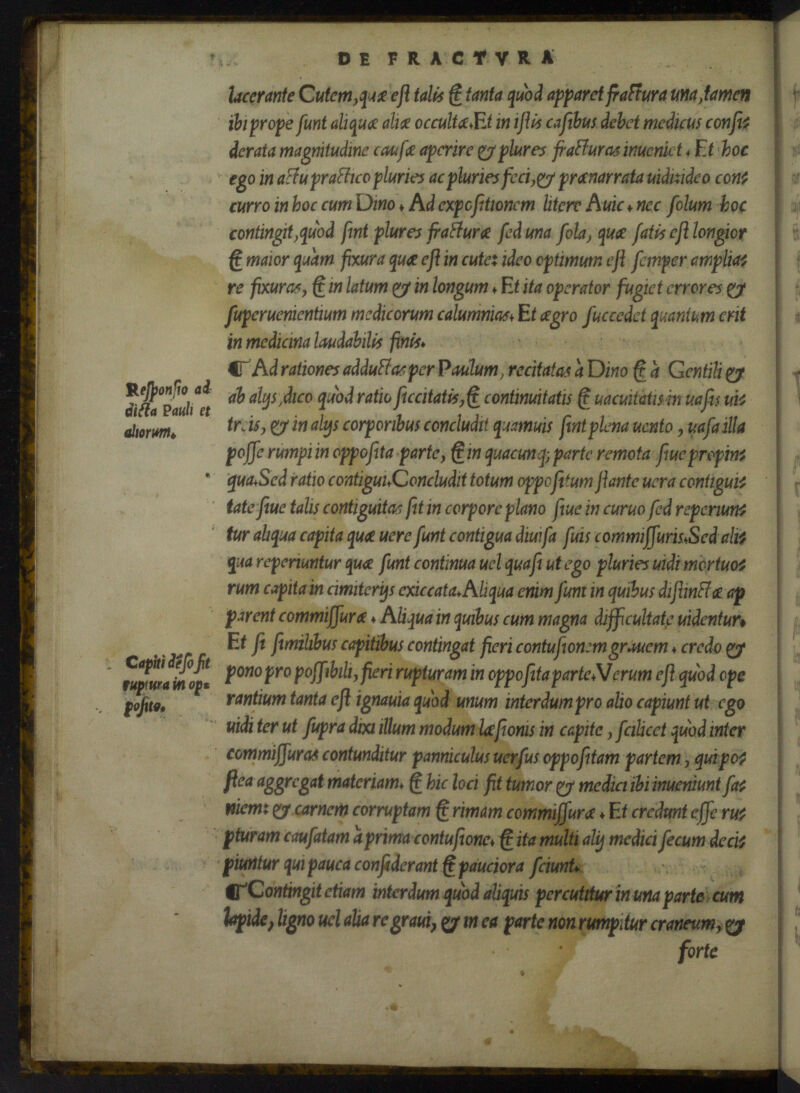 DE FRACTVRA
lacerante Cutem, quæ est talis & tanta quòd apparet fractura una, tamen
ibi prope sunt aliquæ aliæ occultæ. Et in istis casibus debet medicus consi=
derata magnitudine causæ aperire & plures fracturas inueniet. Et hoc
ego in actu practico pluries ac pluries feci, & prænarrata uidi: ideo con=
curro in hoc cum Dino. Ad expositionem litere Auic. nec solum hoc
contingit, quòd sint plures fracturæ sed una sola, quæ satis est longior
& maior quàm fixura quæ est in cute: ideo optimum est semper amplia=
re fixuras, & in latum & in longum. Et ita operator fugiet errores &
superuenientium medicorum calumnias. Et ægro succedet quantum erit
in medicina laudabilis finis.
Responsio ad
dicta Pauli et
aliorum.
¶ Ad rationes adductas per Paulum, recitatas à Dino & à Gentili &
ab alijs, dico quòd ratio siccitatis, & continuitatis & uacuitatis in uasis ui=
treis, & in alijs corporibus concludit quamuis sint plena uento, uasa illa
posse rumpi in opposita parte, & in quacunq; parte remota siue propin=
qua. Sed ratio contigui. Concludit totum oppositum stante uera contigui=
tate siue talis contiguitas sit in corpore plano siue in curuo sed reperiun=
tur aliqua capita quæ uere sunt contigua diuisa suis commissuris. Sed ali=
qua reperiuntur quæ sunt continua uel quasi ut ego pluries uidi mortuo=
rum capita in cimiterijs exiccata. Aliqua enim sunt in quibus distinctæ ap
parent commissuræ. Aliqua in quibus cum magna difficultate uidentur.
Capiti dẽso fit
ruptura in op=
posito.
Et si similibus capitibus contingat fieri contusionem grauem. credo &
pono pro possibili, fieri rupturam in opposita parte. Verum est quòd ope
rantium tanta est ignauia quòd unum interdum pro alio capiunt ut ego
uidi ter ut supra dixi illum modum læsionis in capite, scilicet quòd inter
commissuras contunditur panniculus uersus oppositam partem, qui po=
stea aggregat materiam. & hic loci fit tumor & medici ibi inueniunt sa=
niem: & carnem corruptam & rimam commissuræ. Et credunt esse ru=
pturam causatam à prima contusione. & ita multi alij medici secum deci=
piuntur qui pauca considerant & pauciora sciunt.
¶ Contingit etiam interdum quòd aliquis percutitur in una parte cum
lapide, ligno uel alia re graui, & in ea parte non rumpitur craneum, &
forte